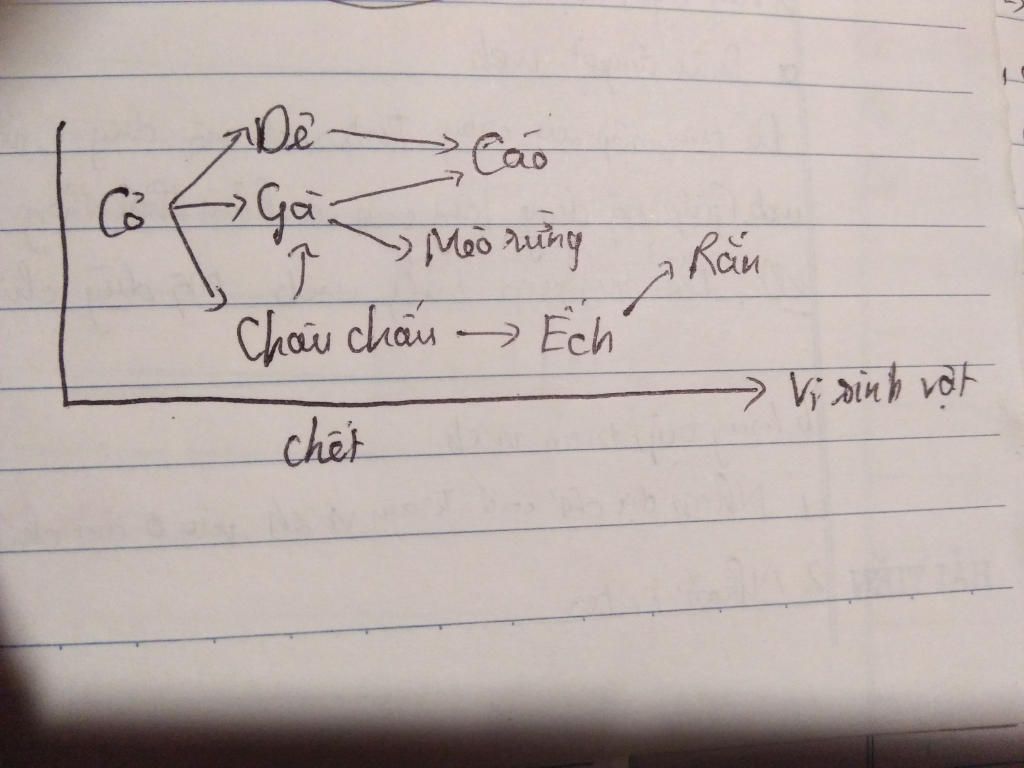 Dê
Cáo
Cỏ
Gà
Mèo rừng
Rắn
Châu chấu
Ếch
Vi sinh vật
chết